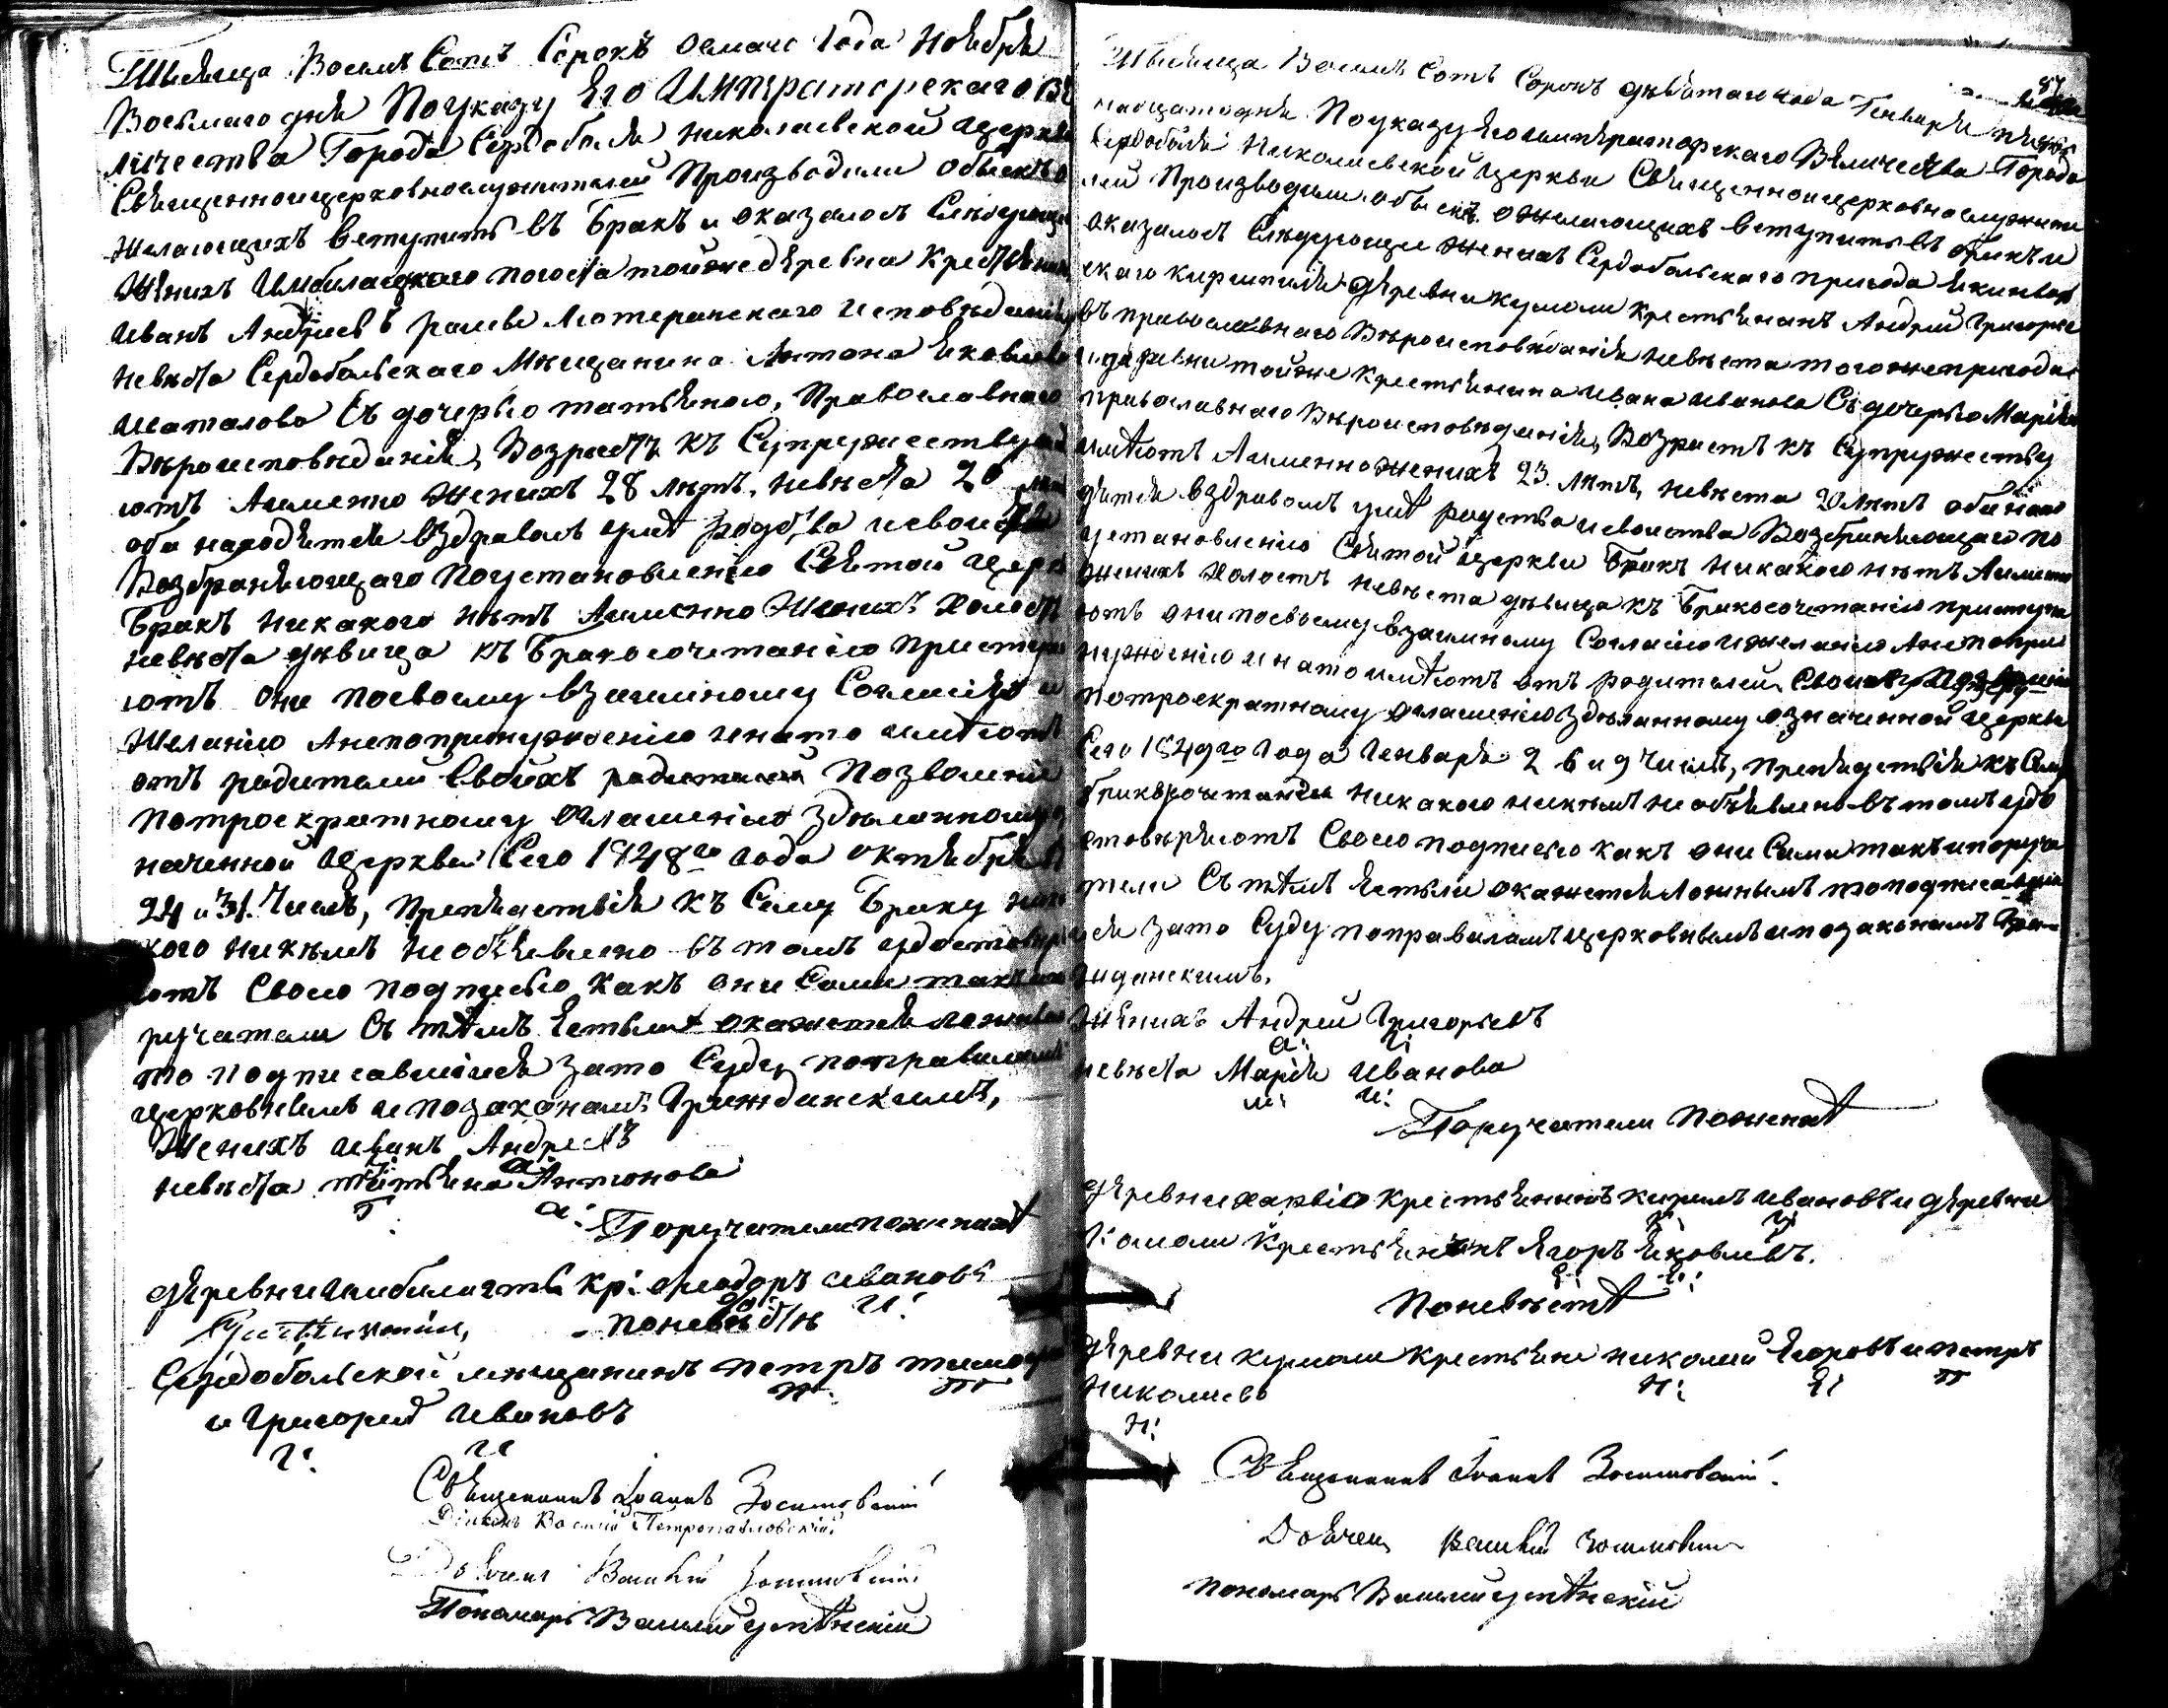 Тысяща Восемь Сотъ Сорокъ осмаго Года Ноября
Восьмаго дня По указу Его Императорскаго Ве
личества Города Сердоболя Николаевской церкви
Священноицерковнослужители Производили обыскъ о
желающихъ вступить въ Бракъ и оказалось Следующее
Женихъ Имбилацкаго погоста тойже деревна Крестьянинъ
Иванъ Андреевъ Лютеранскаго исповѣданія
Невѣста Сердобольскаго Мѣщанина Антона Яковлева
Шаталова Съ дочерью татьяною, Православнаго
Вѣроисповѣданія, Возрастъ къ Супружеству
ютъ Аименно Женихъ 28 лѣтъ, Невѣста 20
оба находятся въздравомъ умѣ родства исвойства
Возбраняющаго Поустановленію Святой церкви
Бракъ Никакого нѣтъ Аименно Женихъ холостъ
Невѣста дѣвица къ Бракосочетанію приступа
ютъ они посвоему взаимному Согласію и
Желанію Анепопринужденію инато имѣютъ
отъ родителей Своихъ Позволеніе
Потроекратному оглашенію здѣланному
наченной церкви Сего 1848го года октября
24 и 31. Числъ, Препядствія къ Сему Браку ника
кого никѣмъ необъявлено въ томъ удостовѣря
ютъ Своею подписью какъ они Сами такъ
ручатели Съ тѣмъ Естьли окажется ложно
то подписавшіися зато Суду поправиламъ
церковнымъ и позаконамъ Гражданскимъ,
Женихъ иванъ Андреевъ
невѣста татьяна Антонова
Т: а:
Поручатели поженихѣ
деревни имбилагть кр: Феодоръ ивановъ
и:
поневѣстѣ
Сердобольской мѣщанинъ петръ
п: т
и Григорій ивановъ
г: и
Священникъ Іоаннъ Зосимовскій
Діаконъ Василій Петропавловскій
Дьячекъ Василій Зосимовскій
Пономарь Василій
Тысяща Восемь Сотъ Сорокъ девятаго года Генваря
надцатодня По указу Его императорскаго Величества Города
Сердоболя Николаевской церкви Священноицерковнослужите
лей Производили обыскъ ожелающихъ вступить въ бракъ и
оказалось Слѣдующее женихъ Сердобольскаго прихода
скаго деревни крестьянинъ Андрей Григорье
въ православнаго Вѣроисповѣданія Невѣста тогожеприхода
идеревни тойже крестьянина ивана иванова Съ дочерью Маріею
православнаго Вѣроисповѣданія, Возрастъ къ Супружеству
имѣютъ Аименно женихъ 23 лѣтъ, невѣста лѣтъ оба нахо
дятся вздравомъ умѣ родства исвойства Возбраняющаго по
установленію Святой церкви Бракъ никакого нѣтъ Аименно
женихъ холостъ невѣста дѣвица къ Бракосочетанію приступа
ютъ они посвоему взаимному Согласію ижеланію Анепопри
нужденію инато имѣютъ отъ родителей Своихъ
Потроекратному оглашенію здѣланному означенной церкви
Сего 1849го года Генваря 2 6 и 9 Числъ, Препядствія къ Сему
бракосочетанію никакого никѣмъ необъявлено въ томъ удо
стовѣряютъ Своею подписью какъ они Сами такъ ипоруча
тели Съ тѣмъ Естьли окажется ложнымъ то подписавшіи
ся зато Суду поправиламъ церковнымъ и позаконамъ Гра
жданскимъ.
Женихъ Андрей Григорьевъ
а: г:
невѣста Марія Иванова
м: и:
Поручатели поженихѣ
деревни крестьянинъ кирилъ ивановъ и деревни
к: и
крестьянинъ Ягоръ Яковлевъ.
Поневѣстѣ
деревни крестьяне николай Егоровъ и петръ
н: Е: п
Николаевъ
н:
Священникъ Іоаннъ Зосимовскій.
Дьячекъ Василій Зосимовскій
пономарь Василій